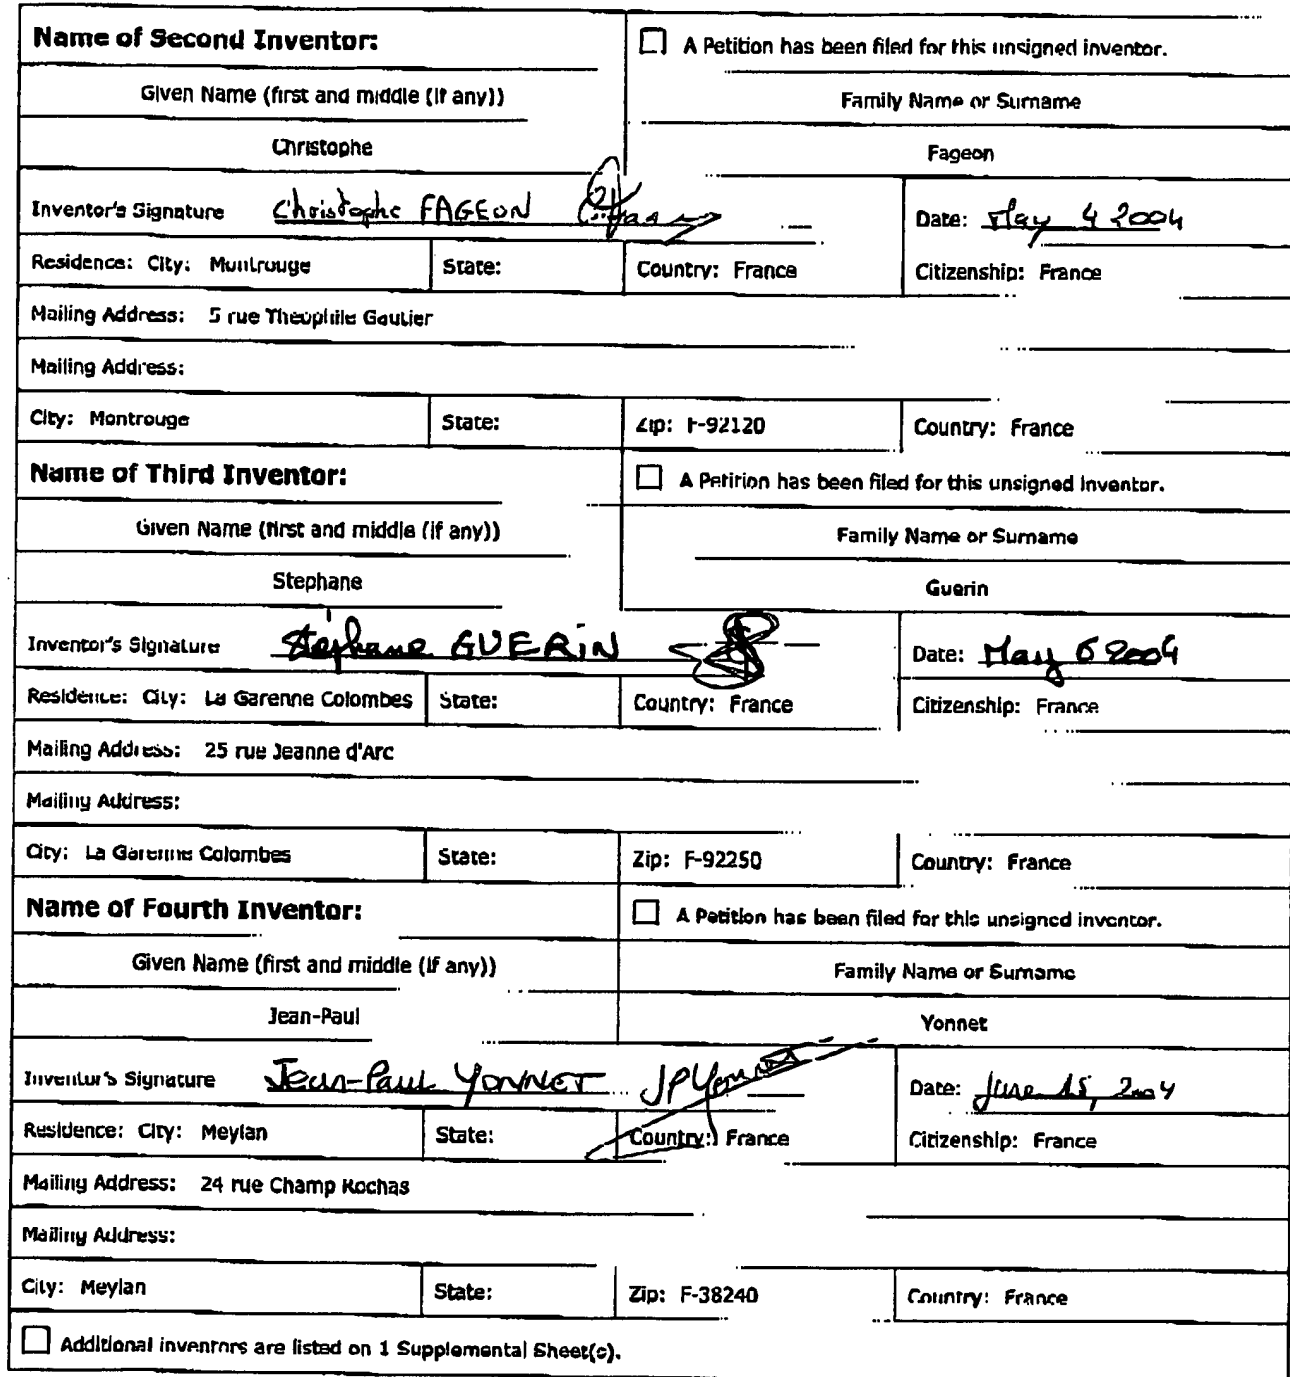 Name of Second Inventor: A Petition has been filed for this unsigned inventor.
Given Name (first and middle (if any)) Family Name or Surname
Christophe Fageon
Inventor's Signature Christophe FAGEON Date: May 4 2004
Residence: City: Montrouge State: Country: France Citizenship: France
Mailing Address: 5 rue Theophile Gautier
Mailing Address:
City: Montrouge State: Zip: F-92120 Country: France
Name of Third Inventor: A Petition has been filed for this unsigned inventor.
Given Name (first and middle (if any)) Family Name or Surname
Stephane Guerin
Inventor's Signature Stéphane GUERIN Date: May 6 2004
Residence: City: La Garenne Colombes State: Country: France Citizenship: France
Mailing Address: 25 rue Jeanne d'Arc
Mailing Address:
City: La Garenne Colombes State: Zip: F-92250 Country: France
Name of Fourth Inventor: A Petition has been filed for this unsigned inventor.
Given Name (first and middle (if any)) Family Name or Surname
Jean-Paul Yonnet
Inventor's Signature Jean-Paul YONNET JPYonnet Date: June 15, 2004
Residence: City: Meylan State: Country: France Citizenship: France
Mailing Address: 24 rue Champ Rochas
Mailing Address:
City: Meylan State: Zip: F-38240 Country: France
Additional inventors are listed on 1 Supplemental Sheet(s).